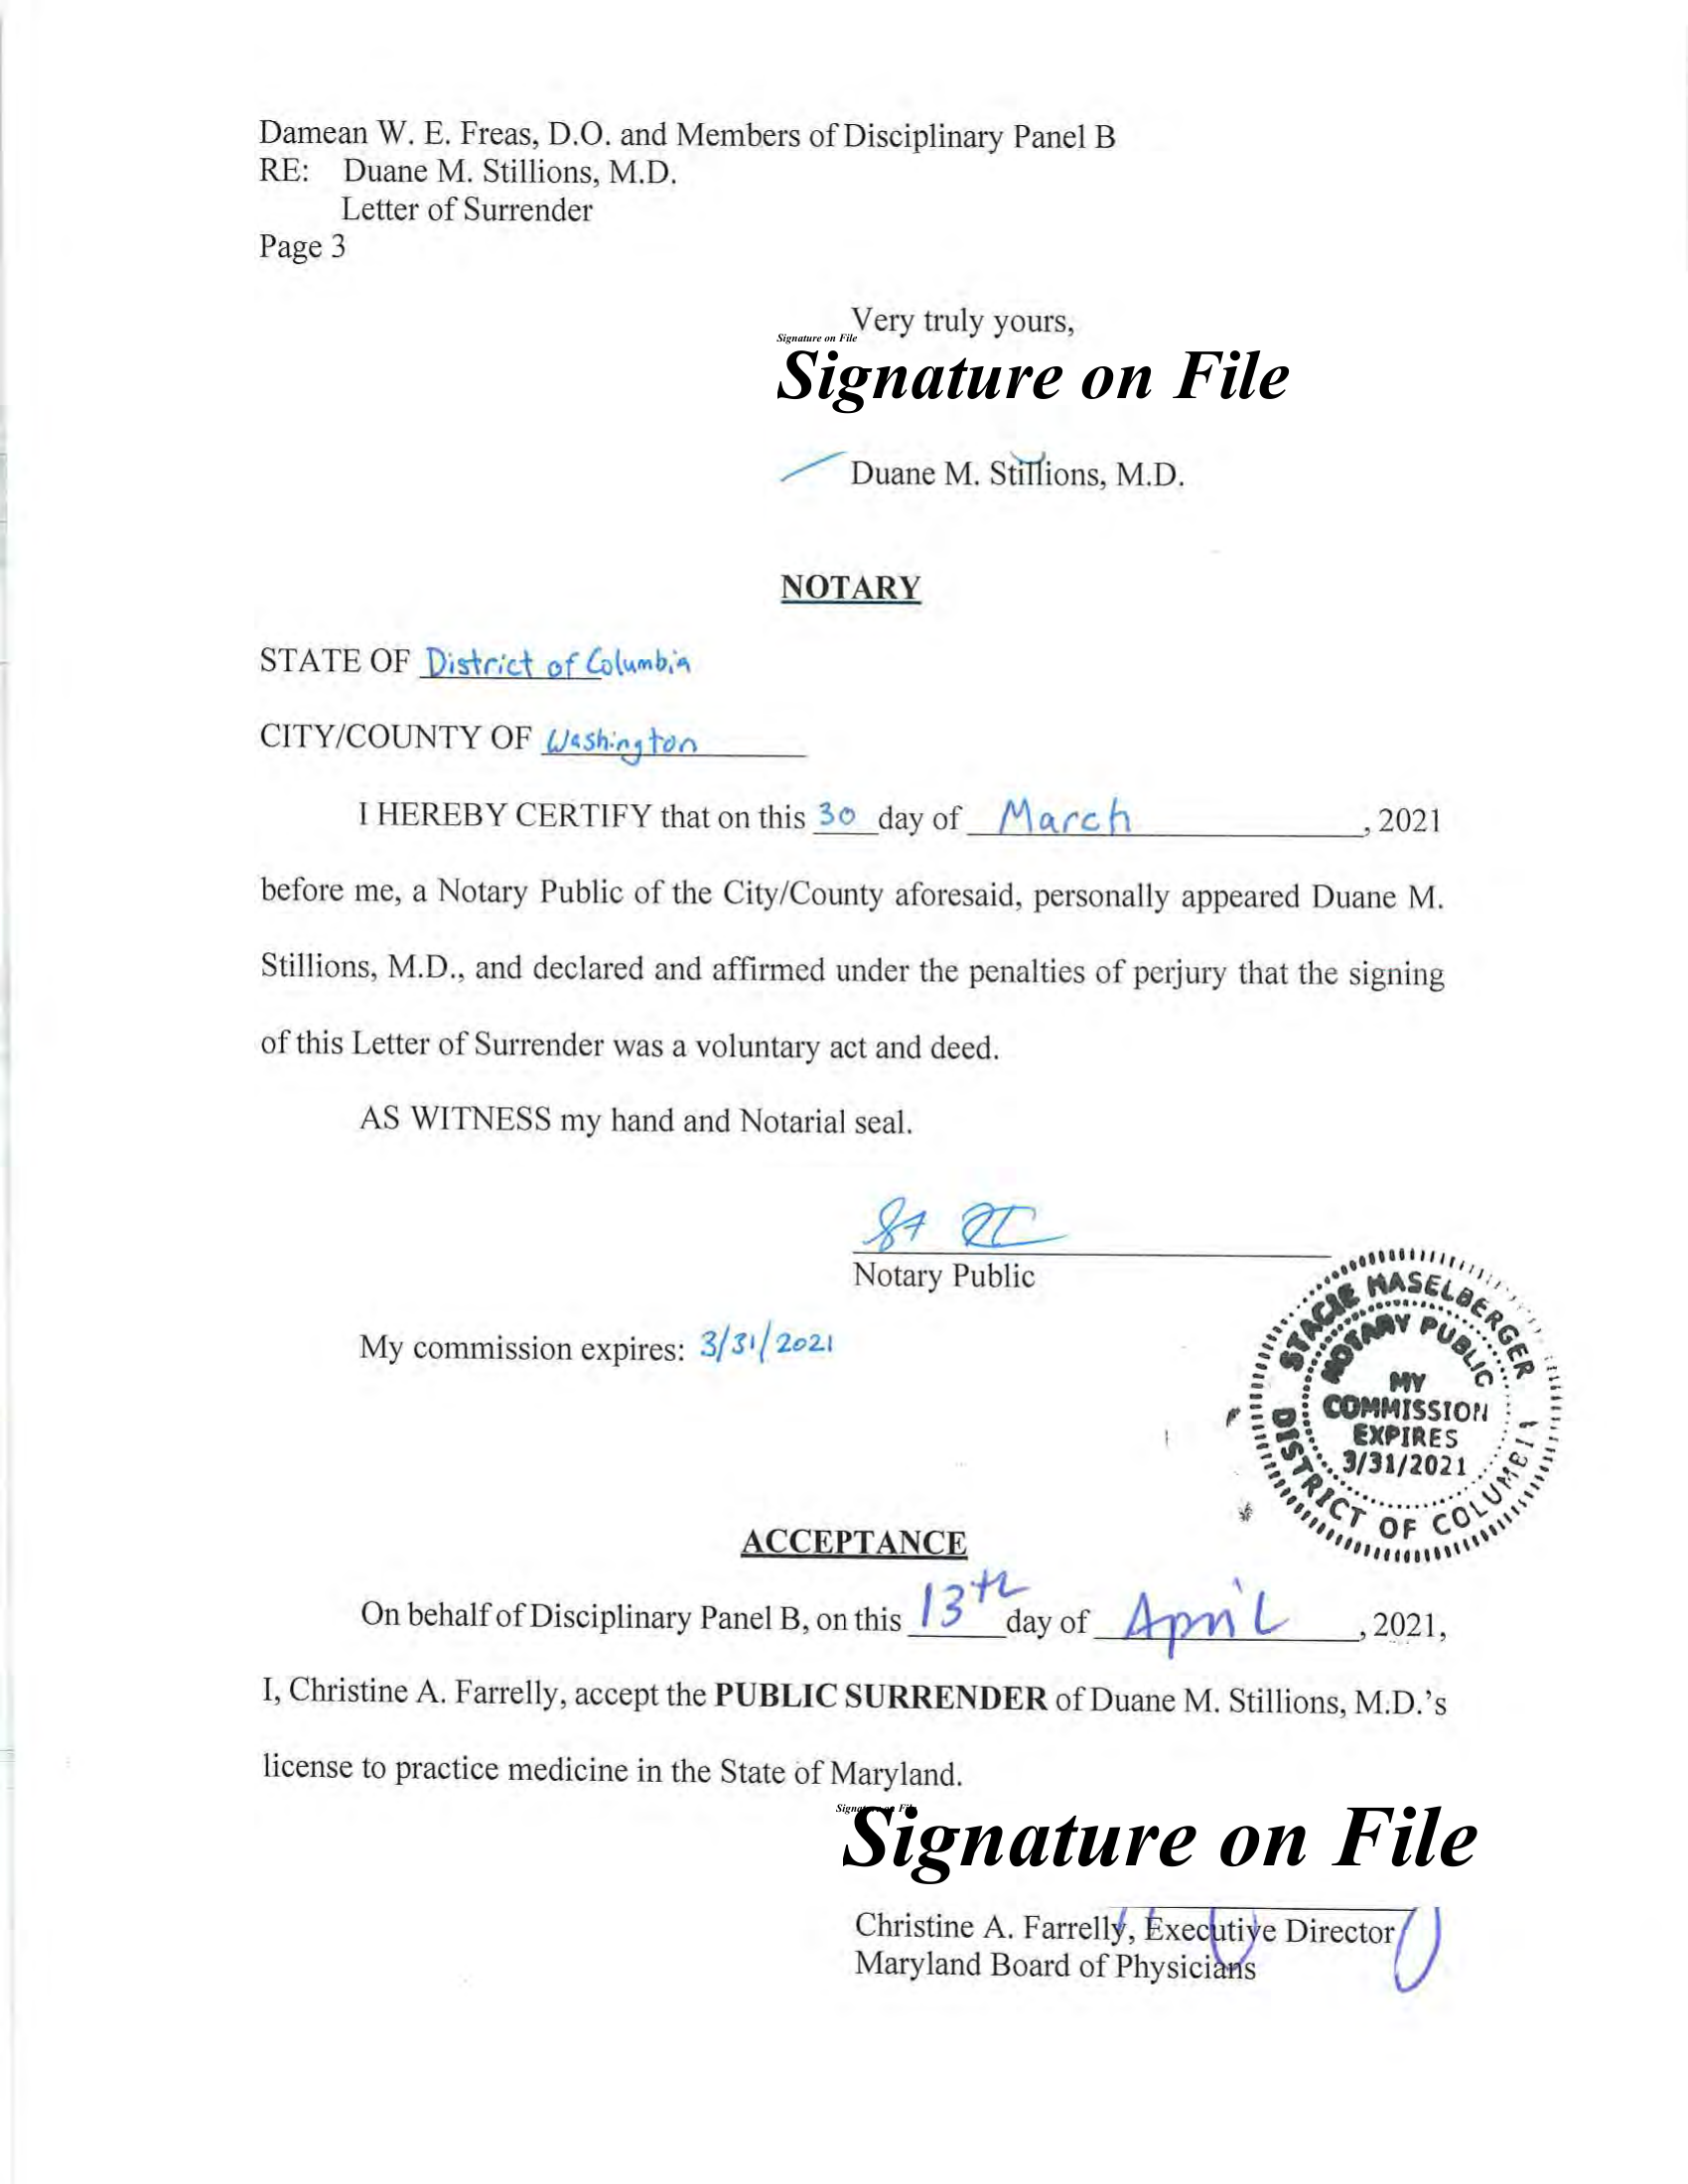 Damean W. E. Freas, D.O. and Members of Disciplinary Panel B
RE: Duane M. Stillions, M.D.
Letter of Surrender
Page 3
Very truly yours,
Signature on File
Signature on File
Duane M. Stillions, M.D.
NOTARY
STATE OF District of Columbia
CITY/COUNTY OF Washington
I HEREBY CERTIFY that on this 30 day of March, 2021
before me, a Notary Public of the City/County aforesaid, personally appeared Duane M.
Stillions, M.D., and declared and affirmed under the penalties of perjury that the signing
of this Letter of Surrender was a voluntary act and deed.
AS WITNESS my hand and Notarial seal.
Notary Public
My commission expires: 3/31/2021
STACIE HASELBERGER
NOTARY PUBLIC
MY
COMMISSION
EXPIRES
3/31/2021
DISTRICT OF COLUMBIA
ACCEPTANCE
On behalf of Disciplinary Panel B, on this 13th day of April, 2021,
I, Christine A. Farrelly, accept the PUBLIC SURRENDER of Duane M. Stillions, M.D.'s
license to practice medicine in the State of Maryland.
Signature on File
Signature on File
Christine A. Farrelly, Executive Director
Maryland Board of Physicians